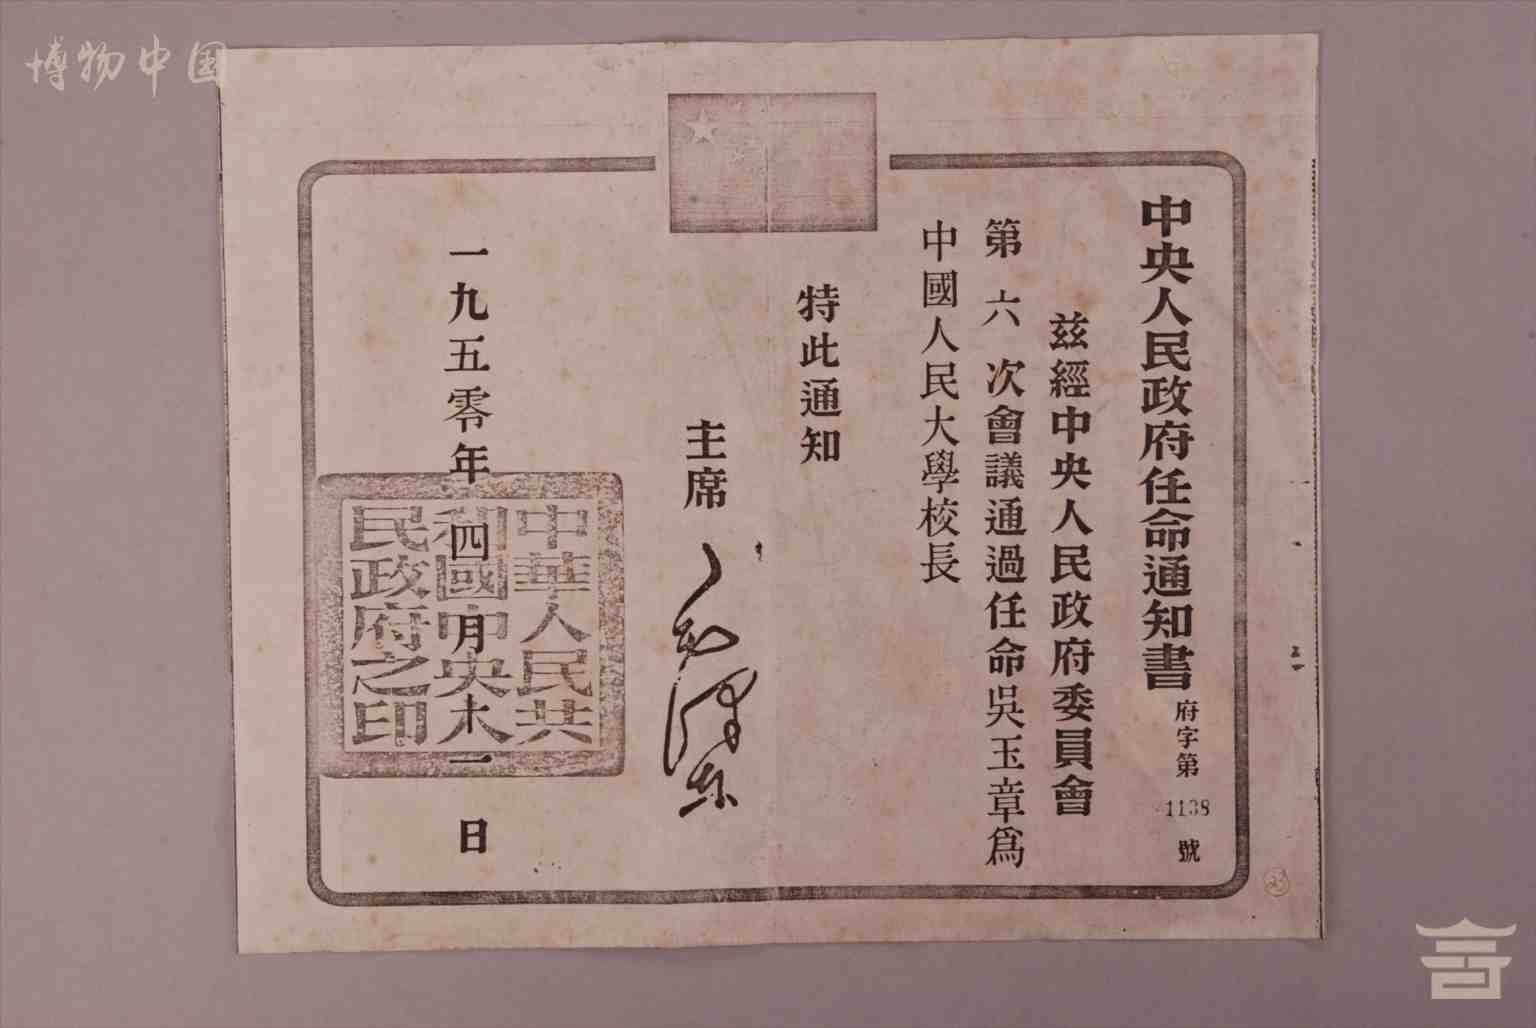 博物中国
中央人民政府任命通知書
府字第1138號
茲經中央人民政府委員會
第六次會議通過任命吳玉章爲
中國人民大學校長
特此通知
主席 毛澤東
一九五零年四月十一日
中華人民共
和國中央人
民政府之印